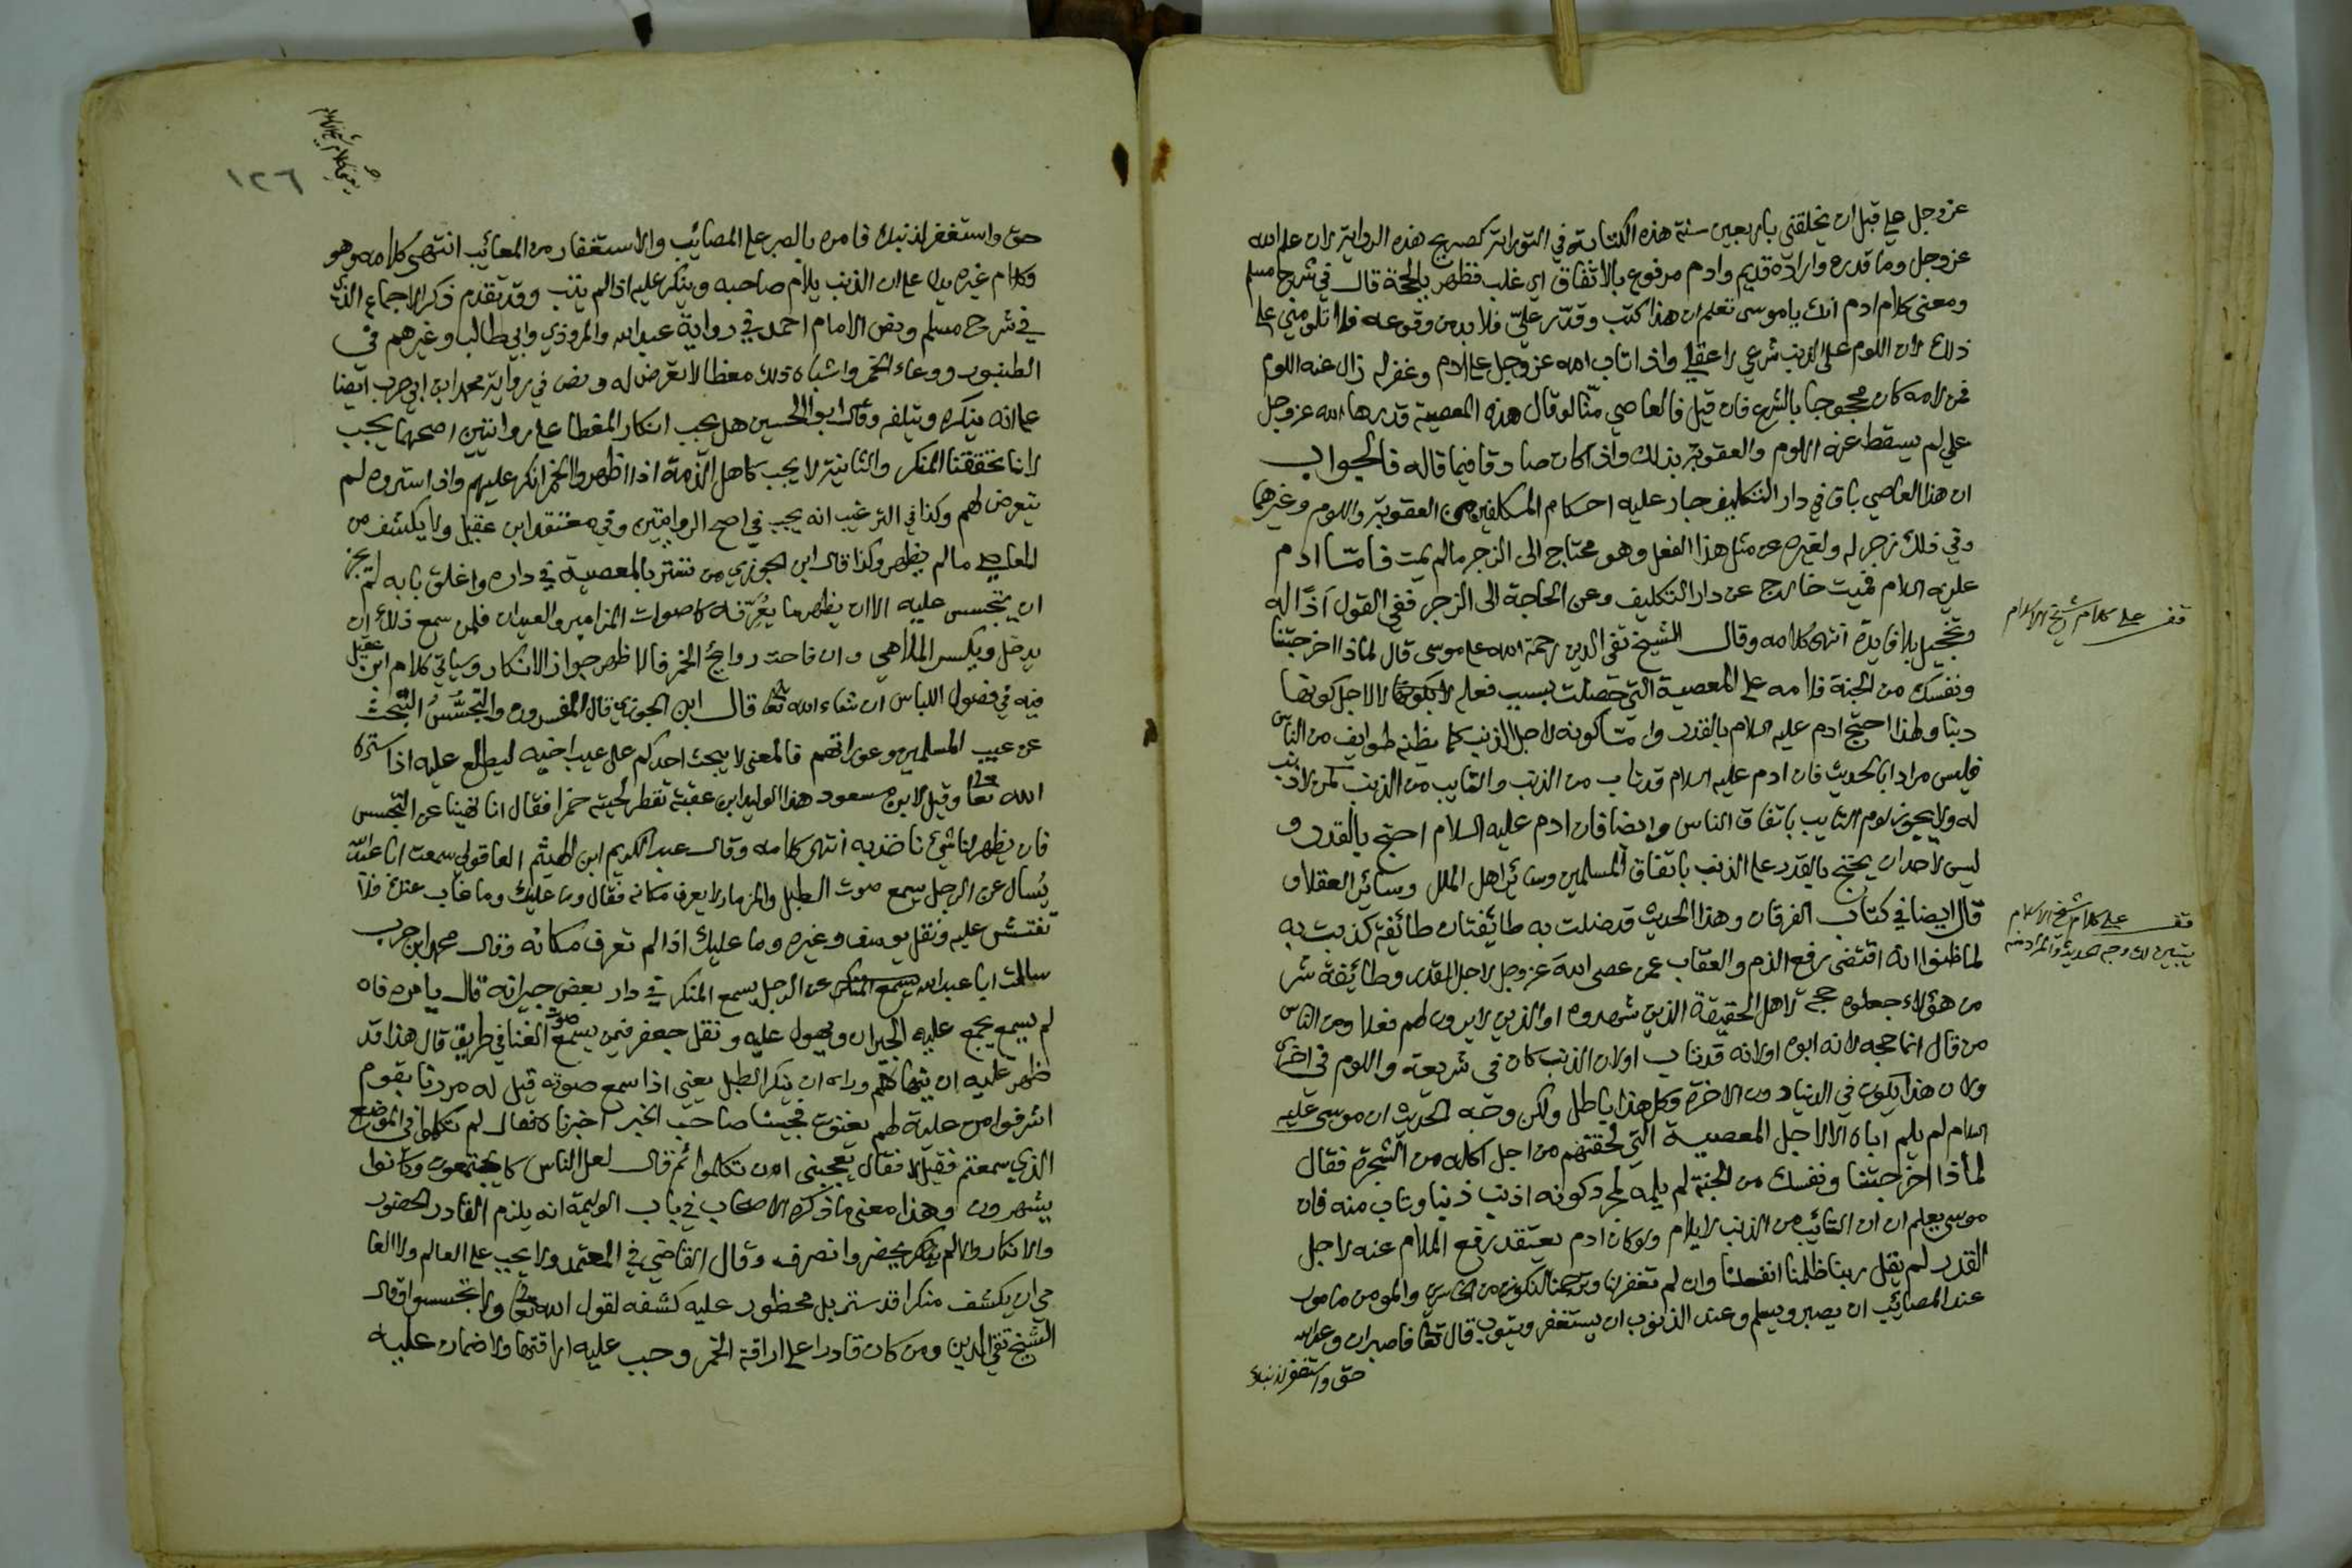 عز وجل علي قبل ان يخلقني باربعين سنة هذه الكتابة في التوراة كصريح هذه الرواية لان علم الله
عز وجل وما قدره واراده قديم وادم مرفوع بالاتفاق اي غلب فظهر بالحجة قال في شرح مسلم
ومعنى كلام ادم انك يا موسى تعلم ان هذا كتب وقدر علي فلا بد من وقوعه فلا تلومني على
ذلك لان اللوم على الذنب شرعي لا عقلي واذا تاب الله عز وجل على ادم وغفر له زال عنه اللوم
فمن لامه كان محجوجا بالشرع فان قيل فالعاصي منا لو قال هذه المعصية قدرها الله عز وجل
علي لم يسقط عنه اللوم والعقوبة بذلك واذا كان صادقا فيما قاله فالجواب
ان هذا العاصي باق في دار التكليف جار عليه احكام المكلفين من العقوبة واللوم وغيرهما
وفي ذلك زجر له ولغيره عن مثل هذا الفعل وهو محتاج الى الزجر ما لم يمت فاما ادم
عليه السلام فميت خارج عن دار التكليف وعن الحاجة الى الزجر ففي القول اذا له
وتخجيل بلا فايدة انتهى كلامه وقال الشيخ تقي الدين رحمة الله على موسى قال لماذا اخرجتنا
قف على كلام شيخ الاسلام
ونفسك من الجنة فلامه على المعصية التي حصلت بسبب فعله لا لاجل كونها
دنبا ولهذا احتج ادم عليه السلام بالقدر واما كونه لاجل الذنب كما يظنه طوايف من الناس
فليس مرادا بالحديث فان ادم عليه السلام قد تاب من الذنب والتايب من الذنب كمن لا ذنب
له ولا يجوز لوم التايب باتفاق الناس وايضا فان ادم عليه السلام احتج بالقدر و
ليس لاحد ان يحتج بالقدر على الذنب باتفاق المسلمين وسائر اهل الملل وسائر العقلا و
قال ايضا في كتاب الفرقان وهذا الحديث قد ضلت به طائفتان طائفة كذبت به
قف على كلام شيخ الاسلام
يتبين لك وجه الحديث والمراد منه
لما ظنوا انه اقتضى رفع الذم والعقاب عمن عصى الله عز وجل لاجل القدر وطائفة شر
من هؤلاء جعلوه حجة لاهل الحقيقة الذين شهدوه او الذين لا يرون لهم فعلا ومن الناس
من قال انما حجه لانه ابوه او لانه قد تاب او لان الذنب كان في شريعة واللوم في اخرى
ولان هذا يكون في الدنيا دون الاخرة وكل هذا باطل ولكن وجه الحديث ان موسى عليه
السلام لم يلم اباه الا لاجل المعصية التي لحقتهم من اجل اكله من الشجرة فقال
لماذا اخرجتنا ونفسك من الجنة لم يلمه لمجرد كونه اذنب ذنبا وتاب منه فان
موسى يعلم ان التائب من الذنب لا يلام ولو كان ادم يعتقد رفع الملام عنه لاجل
القدر لم يقل ربنا ظلمنا انفسنا وان لم تغفر لنا وترحمنا لنكونن من الخاسرين والمومن مامور
عند المصائب ان يصبر ويسلم وعند الذنوب ان يستغفر ويتوب قال تعا فاصبر ان وعد الله
حق واستغفر لذنبك
١٢٦
حق واستغفر لذنبك فامره بالصبر على المصائب والاستغفار من المعائب انتهى كلامه وهو
وكلام غيره يدل على ان الذنب يلام صاحبه وينكر عليه اذا لم يتب وقد تقدم ذكر الاجماع الذي
في شرح مسلم ونص الامام احمد في رواية عبد الله والمروذي وابي طالب وغيرهم في
الطنبور ووعاء الخمر واشباه ذلك مغطا لا يعرض له ونص في رواية محمد ابن ابي حرب ايضا
على انه ينكره ويتلفه وقال ابو الحسين هل يجب انكار المغطا على روايتين اصحهما يجب
لاننا تحققنا المنكر والثانية لا يجب كاهل الذمة اذا اظهروا الخمر انكر عليهم واذا ستروه لم
يتعرض لهم وكذا في الترغيب انه يجب في اصح الروايتين وفي معتقد ابن عقيل ولا يكشف من
المعاصي ما لم يظهر وكذا قال ابن الجوزي من تستر بالمعصية في داره واغلق بابه لم يجز
ان يتجسس عليه الا ان يظهر ما يُعَرِّفه كاصوات المزامير والعيدان فلمن سمع ذلك ان
يدخل ويكسر الملاهي وان فاحت روائح الخمر فالاظهر جواز الانكار وسياتي كلام ابن عقيل
فيه في فصول اللباس ان شاء الله تعا قال ابن الجوزي قال المفسرون والتجسُّسُ البحث
عن عيب المسلمين وعوراتهم فالمعنى لا يبحث احدكم على عيب اخيه ليطلع عليه اذا ستره
الله تعا وقيل لابن مسعود هذا الوليد ابن عقبة تقطر لحيته خمرا فقال انا نهينا عن التجسس
فان يظهر لنا شيء ناخذ به انتهى كلامه وقال عبد الكريم ابن الهيثم العاقولي سمعت ابا عبد الله
يُسال عن الرجل يسمع صوت الطبل والمزمار لا يعرف مكانه فقال وما عليك وما غاب عنك فلا
تفتش عليه ونقل يوسف وغيره وما عليك اذا لم تعرف مكانه وقال محمد ابن حرب
سالت ابا عبد الله عن الرجل يسمع المنكر في دار بعض جيرانه قال يامره فان
لم يسمع يجمع عليه الجيران ويهول عليه ونقل جعفر فيمن يسمع صوت الغنا في طريق قال هذا قد
ظهر عليه ان ينهاهم وراى ان ينكر الطبل يعني اذا سمع صوته قيل له مررنا بقوم
اشرفوا من علية لهم يغنون فجينا صاحب الخبر اخبرناه فقال لم تكلموا في الموضع
الذي سمعتم فقيل لا فقال يعجبني ان تكلموا ثم قال لعل الناس كانوا يجتمعون وكانوا
يشهرون وهذا معنى ما ذكره الاصحاب في باب الوليمة انه يلزم القادر الحضور
والانكار والا لم يحضر وانصرف وقال القاضي في المعتمد ولا يجب على العالم ولا العا
مي ان يكشف منكرا قد ستر بل محظور عليه كشفه لقول الله تعا ولا تجسسوا وقال
الشيخ تقي الدين ومن كان قادرا على اراقة الخمر وجب عليه اراقتها ولا ضمان عليه